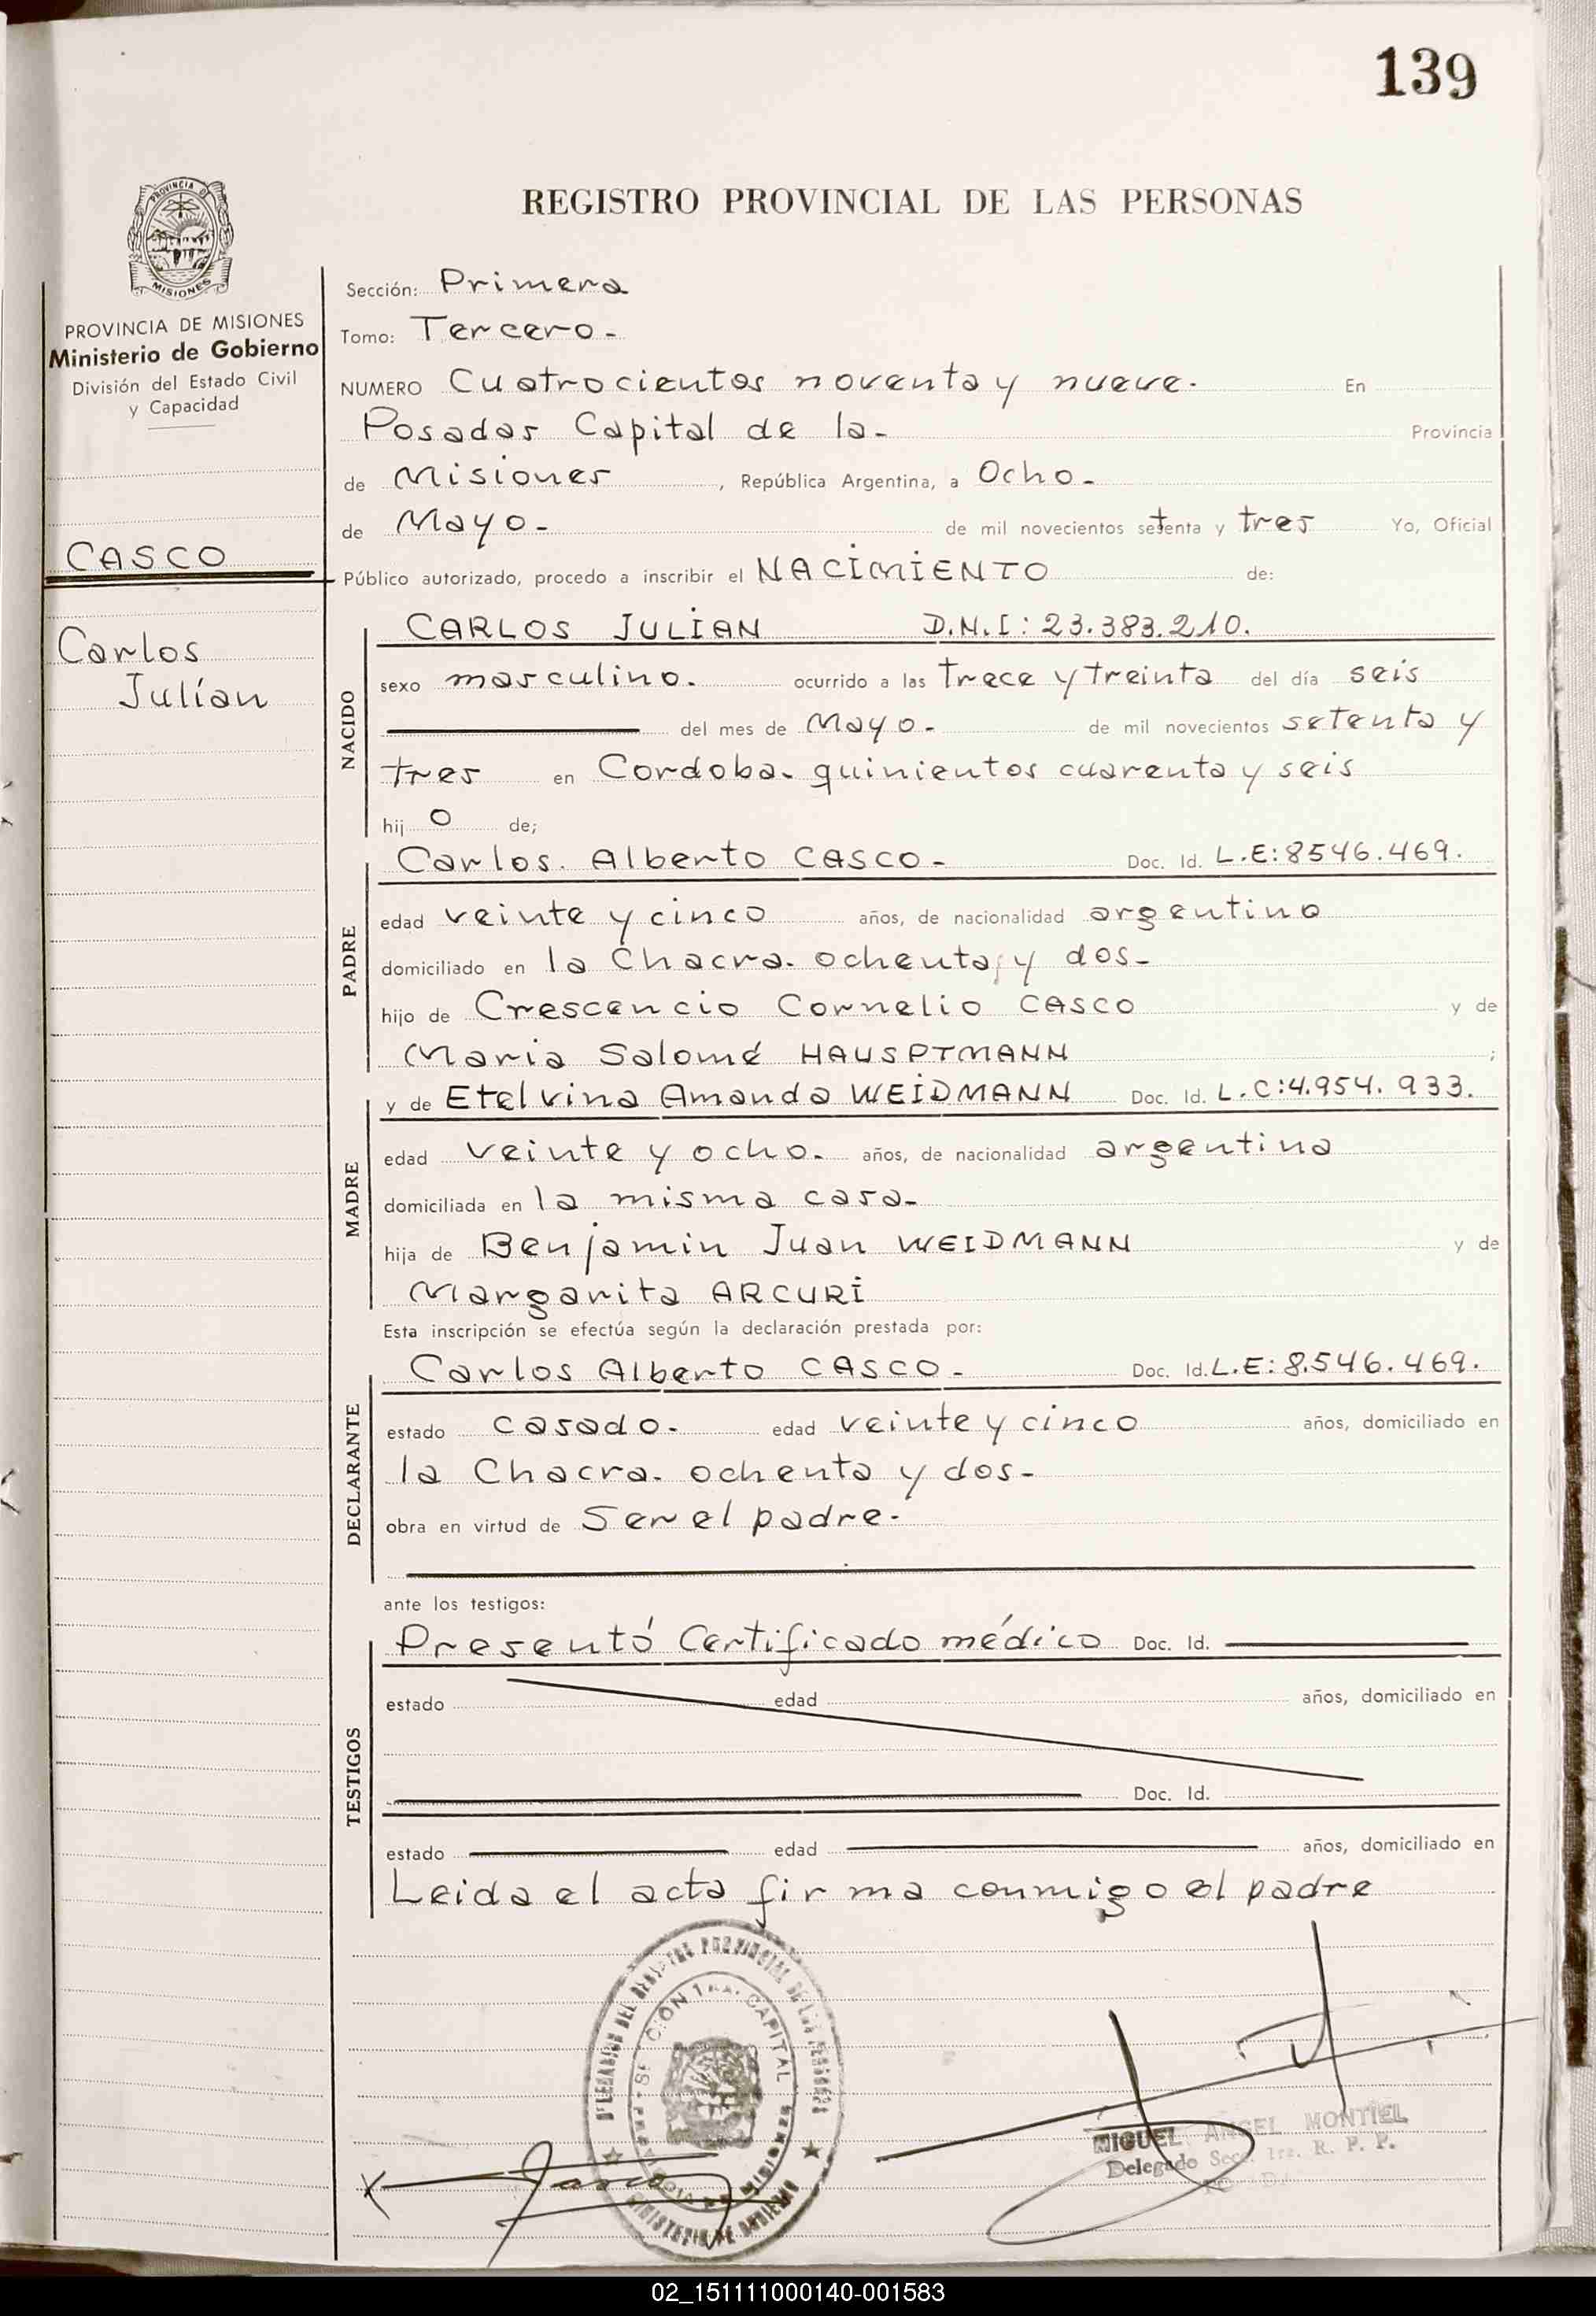 139
PROVINCIA DE
MISIONES
PROVINCIA DE MISIONES
Ministerio de Gobierno
División del Estado Civil
y Capacidad
CASCO
Carlos
Julían
REGISTRO PROVINCIAL DE LAS PERSONAS
Sección: Primera
Tomo: Tercero-
NUMERO Cuatrocientos noventa y nueve. En
Posadas Capital de la- Provincia
de Misiones, República Argentina, a Ocho-
de Mayo- de mil novecientos setenta y tres Yo, Oficial
Público autorizado, procedo a inscribir el NACIMIENTO de:
NACIDO
CARLOS JULIAN D.N.I: 23.383.210.
sexo masculino. ocurrido a las trece y treinta del día seis
del mes de Mayo- de mil novecientos setenta y
tres en Cordoba- quinientos cuarenta y seis
hij o de;
PADRE
Carlos. Alberto CASCO- Doc. Id. L.E:8546.469.
edad veinte y cinco años, de nacionalidad argentino
domiciliado en la Chacra- ochenta y dos-
hijo de Crescencio Cornelio CASCO y de
Maria Salomé HAUSPTMANN ;
MADRE
y de Etelvina Amanda WEIDMANN Doc. Id. L.C:4.954.933.
edad veinte y ocho- años, de nacionalidad argentina
domiciliada en la misma casa-
hija de Benjamin Juan WEIDMANN y de
Margarita ARCURI
Esta inscripción se efectúa según la declaración prestada por:
DECLARANTE
Carlos Alberto CASCO- Doc. Id. L.E:8.546.469.
estado casado- edad veinte y cinco años, domiciliado en
la Chacra- ochenta y dos-
obra en virtud de Ser el padre-
ante los testigos:
TESTIGOS
Presentó Certificado médico Doc. Id.
estado edad años, domiciliado en
Doc. Id.
estado edad años, domiciliado en
Leida el acta firma conmigo el padre
DELEGACION DEL REGISTRO PROVINCIAL DE LAS PERSONAS
SECCION 1RA. CAPITAL
PROVINCIA DE MISIONES
MINISTERIO DE GOBIERNO
MIGUEL ANGEL MONTIEL
Delegado Secc. 1ra. R. P. P.
02_151111000140-001583